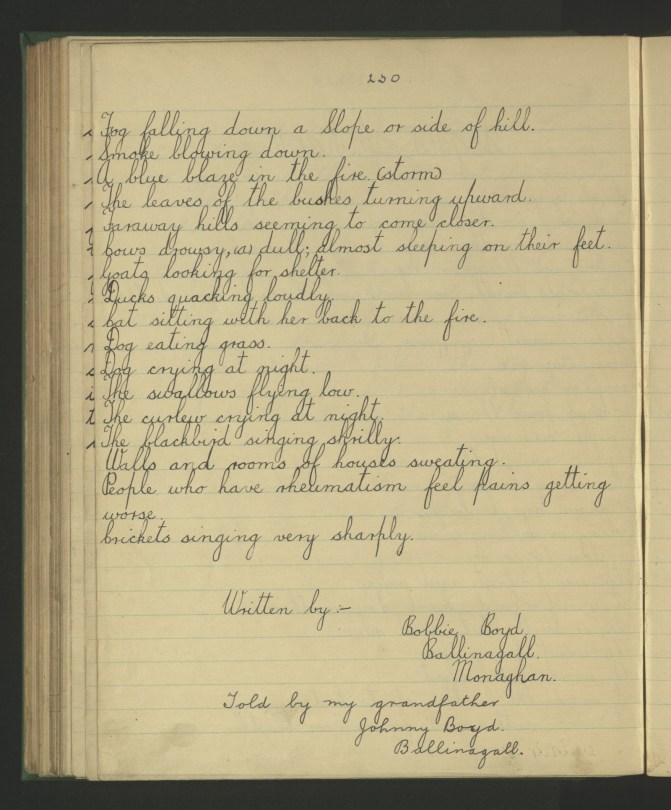 230
Fog falling down a Slope or side of hill.
Smoke blowing down.
A blue blaze in the fire. (storm)
The leaves of the bushes turning upward.
Faraway hills seeming to come closer.
Cows drowsy, (a) dull; almost sleeping on their feet.
Goats looking for shelter.
Ducks quacking loudly.
Cat sitting with her back to the fire.
Dog eating grass.
Dog crying at night.
The swallows flying low.
The curlew crying at night.
The blackbird singing shrilly.
Walls and rooms of houses sweating.
People who have rheumatism feel pains getting
worse.
Crickets singing very sharply.
Written by :-
Bobbie Boyd
Ballinagall.
Monaghan.
Told by my grandfather
Johnny Boyd.
Ballinagall.